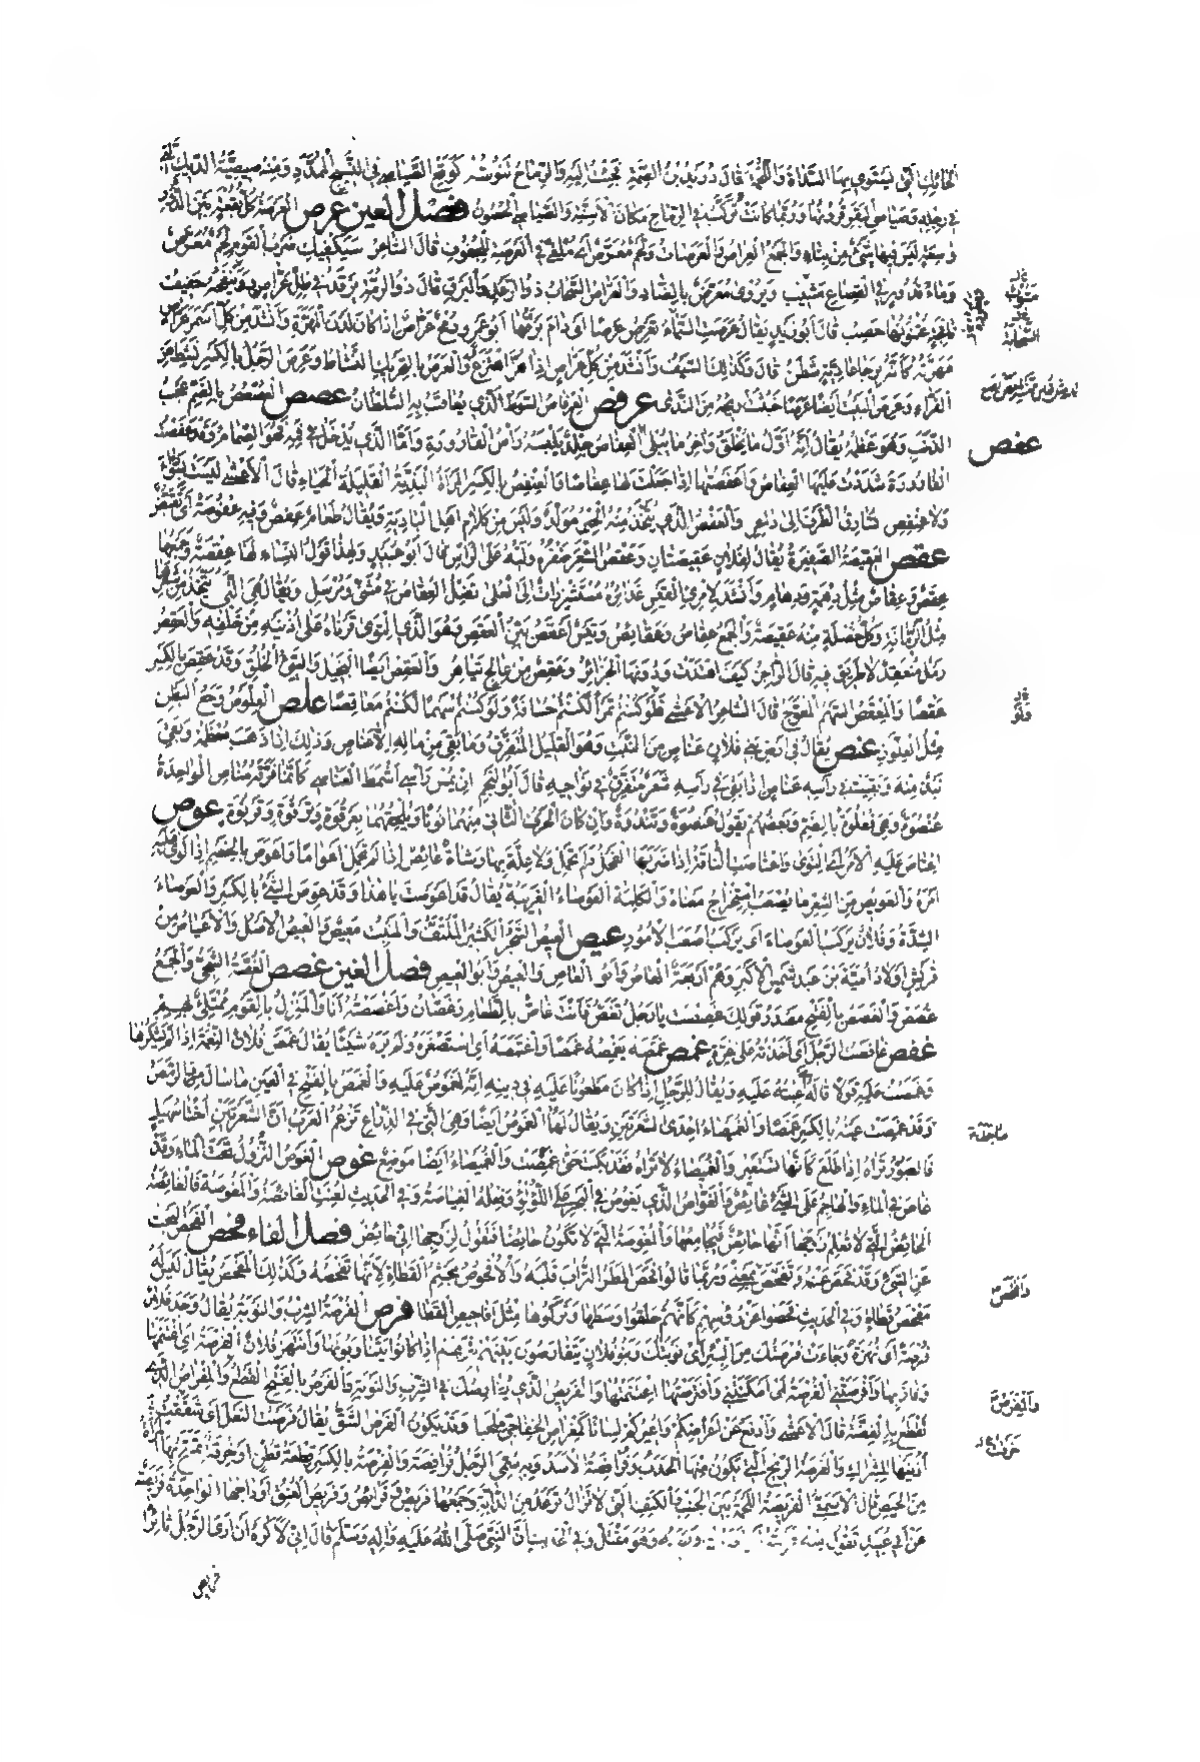 الحائك التي يسوي بها السداة واللحمة قال دريد بن الصمة فجئت اليه والرماح تنوشه كوقع الصياصي في النسيج الممدد ومنه صيصية الديك التي
في رجله وصياصي البقر قرونها وربما كانت تركب في الرماح مكان الاسنة والصياصي الحصون فصل العين عرص العرصة كل بقعة بين الدور
واسعة ليس فيها شيء من بناء والجمع العراص والعرصات ولحم معرص اي ملقى في العرصة للجفوف قال الشاعر سيكفيك صرب القوم لحم معرص
وماء قدور في القصاع مشيب ويروى معرض بالضاد والعراص السحاب ذو الرعد والبرق قال ذو الرمة يرقد في ظل عراص ويطرده حفيف
نافجة عثنونها حصب قال ابو زيد يقال عرصت السماء تعرص عرصا اي دام برقها ابو عمرو رمح عراص اذا كان لدن المهزة وانشد من كل اسمر عراص
مهزته كانه برجا عادية شطن قال وكذلك السيف وانشد من كل عراص اذا هز اهتزع والعرص بالتحريك النشاط وعرص الرجل بالكسر نشط عن
الفراء وعرص البيت ايضا عرصا خبثت ريحه من الندى عرفص العرفاص السوط الذي يعاقب به السلطان عصص العصعص بالضم عجب
الذنب وهو عظمه يقال انه اول ما يخلق واخر ما يبلى العفاص جلد يلبسه رأس القارورة واما الذي يدخل في فمه فهو الصمام وقد عفصت
عفص
القارورة شددت عليها العفاص واعفصتها اذا جعلت لها عفاصا والعنفص بالكسر المرأة البذية القليلة الحياء قال الاعشى ليست بسوداء
ولا عنفص تسارق الطرف الى داعر والعفص الذي يتخذ منه الحبر مولد وليس من كلام اهل البادية ويقال طعام عفص وفيه عفوصة اي تقبض
عقص العقيصة الضفيرة يقال لفلان عقيصتان وعقص الشعر ضفره وليه على الراس قال ابو عبيد ولهذا قول النساء لها عقصة وجمعها
عقص وعقاص مثل رهمة ورهام وانشد لامرئ القيس غدائره مستشزرات الى العلى تضل العقاص في مثنى ومرسل ويقال هي التي تتخذ من شعرها
مثل الرمانة وكل خصلة منه عقيصة والجمع عقاص وعقائص وتيس اعقص بين العقص وهو الذي التوى قرناه على اذنيه من خلفه والعقص
رمل منعقد لا طريق فيه قال الراجز كيف اهتدت ودونها الجزائر وعقص من عالج تياهر والعقص ايضا البخيل والسيئ الخلق وقد عقص بالكسر
عقصا والمعقص السهم المعوج قال الشاعر الاعشى فلو كنتم تمرا لكنتم حسافة ولو كنتم سهما لكنتم معاقصا علص العلوص وجع البطن
مثل العلوز عنص يقال في ارض بني فلان عناص من النبت وهو القليل المتفرق وما بقي من ماله الا عناص وذلك اذا ذهب معظمه وبقي
نبذ منه وبقيت في رأسه عناص اذا بقي في رأسه شعر متفرق في نواحيه قال ابو النجم ان يمس رأسي اشمط العناصي كانما فرقه مناص الواحدة
عنصوة وهي فعلوة بالضم وبعضهم يقول عنصوة وثندوة وان كان الحرف الثاني منهما نونا ويلحقهما بعرقوة وترقوة وقرنوة عوص
اعتاص عليه الامر اي التوى واعتاصت الناقة اذا ضربها الفحل فلم تحمل ولا علة بها وشاة عائص اذا لم تحمل اعواما واعوص بالخصم اذا لوى عليه
امره والعويص من الشعر ما يصعب استخراج معناه والكلمة العوصاء الغريبة يقال قد اعوصت يا هذا وقد عوص الشيء بالكسر والعوصاء
الشدة وفلان يركب العوصاء اي يركب اصعب الامور عيص العيص الشجر الكثير الملتف والمنبت معيص والعيص الاصل والاعياص من
قريش اولاد امية بن عبد شمس الاكبر وهم اربعة العاص وابو العاص والعيص وابو العيص فصل الغين غصص الغصة الشجى والجمع
غصص والغصص بالفتح مصدر قولك غصصت يا رجل تغص فانت غاص بالطعام وغصان واغصصته انا والمنزل غاص بالقوم ممتلئ بهم
غفص غافصت الرجل اي اخذته على غرة غمص غمصه يغمصه غمصا واغتمصه اي استصغره ولم يره شيئا يقال غمص فلان النعمة اذا لم يشكرها
وغمصت عليه قولا قاله اي عبته عليه ويقال للرجل اذا كان مطعونا عليه في دينه انه لمغموص عليه والغمص بالفتح في العين ما سال من الرمص
وقد غمصت عينه بالكسر غمصا والغميصاء احدى الشعريين ويقال لها الغموص ايضا وهي التي في الذراع تزعم العرب ان الشعريين اختا سهيل
فالعبور تراه اذا طلع كانها تستعبر والغميصاء لا تراه فقد بكت حتى غمصت والغميصاء ايضا موضع غوص الغوص النزول تحت الماء وقد
غاص في الماء والهاجم على الشيء غائص والغواص الذي يغوص في البحر على اللؤلؤ وفعله الغياصة وفي الحديث لعنت الغائصة والمغوصة فالغائصة
الحائض التي لا تعلم زوجها انها حائض فيجامعها والمغوصة التي لا تكون حائضا فتقول لزوجها اني حائض فصل الفاء فحص الفحص البحث
عن الشيء وقد فحص عنه وتفحص بمعنى وربما قالوا فحص المطر التراب قلبه والافحوص مجثم القطاة لانها تفحصه وكذلك المفحص يقال ليس له
مفحص قطاة وفي الحديث فحصوا عن رؤسهم كانهم حلقوا وسطها وتركوها مثل افاحيص القطا فرص الفرصة الشرب والنوبة يقال وجد فلان
فرصة اي نهزة وجاءت فرصتك من البئر اي نوبتك وبنو فلان يتفارصون بئرهم اذا كانوا يتناوبونها وانتهز فلان الفرصة اي اغتنمها
وفاز بها وافرصتني الفرصة اي امكنتني وافترصتها اغتنمتها والفريص الذي يفارصك في الشرب والنوبة والفرص بالفتح القطع والمفراص الذي
تقطع به الفضة قال الاعشى وادفع عن اعراضكم واعيركم لسانا كمفراص الخفاجي ملحبا وقد يكون الفرص الشق يقال فرصت النعل اي شققت
اذنيها للشراك والفرصة الريح التي تكون منها الحدب وفرافصة الاسد وبه سمي الرجل فرافصة والفرصة بالكسر قطعة قطن او خرقة تمسح بها المرأة
من الحيض قال الاصمعي الفريصة اللحمة بين الجنب والكتف التي لا تزال ترعد من الدابة وجمعها فريص وفرائص وفريص العنق اوداجها الواحدة فريصة
عن ابي عبيد تقول منه فرصته وهو مقتل وفي الحديث ان النبي صلى الله عليه واله وسلم قال اني لاكره ان ارى الرجل ثائرا
فرائص